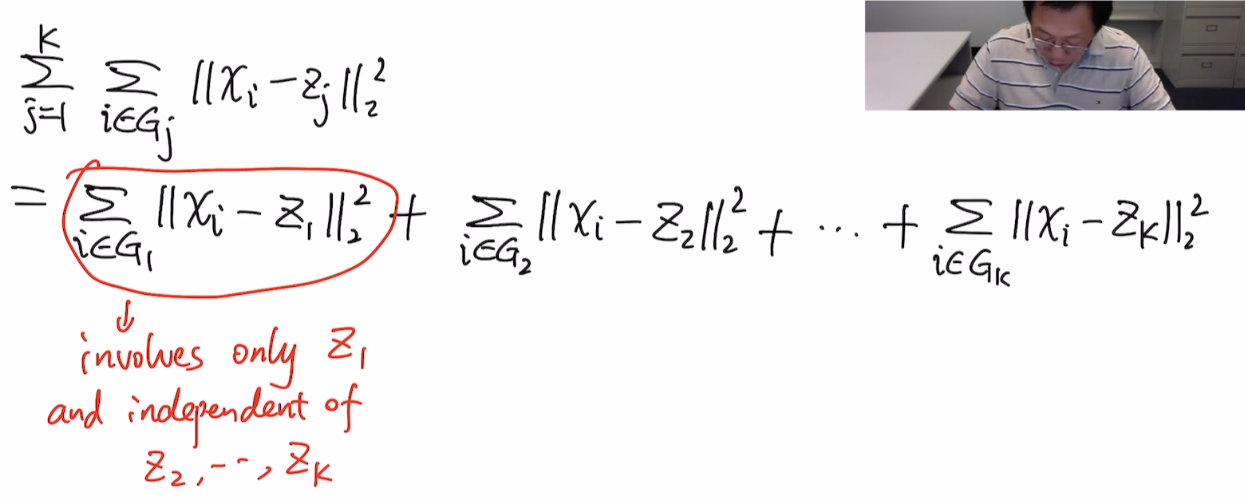 $\sum_{j=1}^{K} \sum_{i \in G_j} \|x_i - z_j\|_2^2$
$= \sum_{i \in G_1} \|x_i - z_1\|_2^2 + \sum_{i \in G_2} \|x_i - z_2\|_2^2 + \cdots + \sum_{i \in G_K} \|x_i - z_K\|_2^2$
↓
involves only $z_1$
and independent of
$z_2, \cdots, z_K$